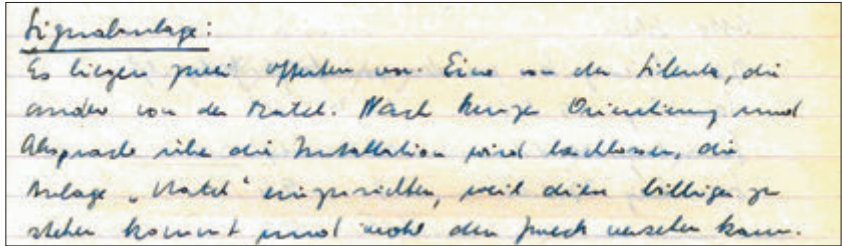 Signalanlage:
Es liegen zwei Offerten vor. Eine von der Silenta, die
andere von der Matel. Nach kurzer Orientierung und
Absprache über die Installation wird beschlossen, die
Anlage „Matel“ einzurichten, weil diese billiger zu
stehen kommt und wohl den Zweck versehen kann.